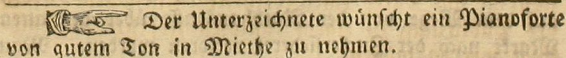 Der Unterzeichnete wünscht ein Pianoforte
von gutem Ton in Miethe zu nehmen.